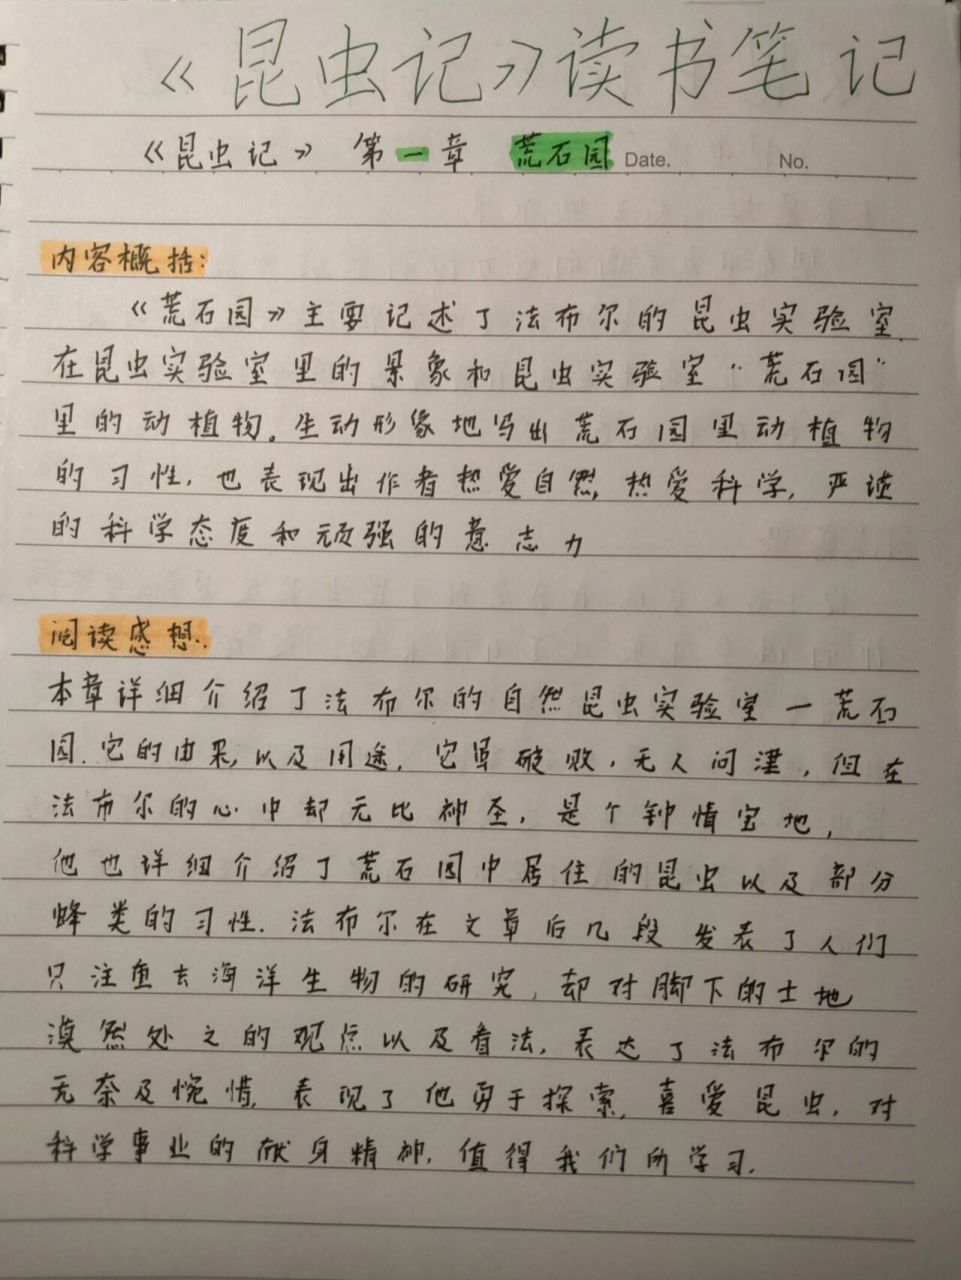 《昆虫记》读书笔记
《昆虫记》 第一章 荒石园 Date. No.
内容概括:
《荒石园》主要记述了法布尔的昆虫实验室.
在昆虫实验室里的景象和昆虫实验室“荒石园”
里的动植物。生动形象地写出荒石园里动植物
的习性,也表现出作者热爱自然,热爱科学,严谨
的科学态度和顽强的意志力
阅读感想:
本章详细介绍了法布尔的自然昆虫实验室一荒石
园.它的由来,以及用途.它虽破败,无人问津,但在
法布尔的心中却无比神圣,是个钟情宝地,
他也详细介绍了荒石园中居住的昆虫以及部分
蜂类的习性.法布尔在文章后几段发表了人们
只注重去海洋生物的研究,却对脚下的土地
漠然处之的观点以及看法,表达了法布尔的
无奈及惋惜,表现了他勇于探索,喜爱昆虫,对
科学事业的献身精神,值得我们所学习.